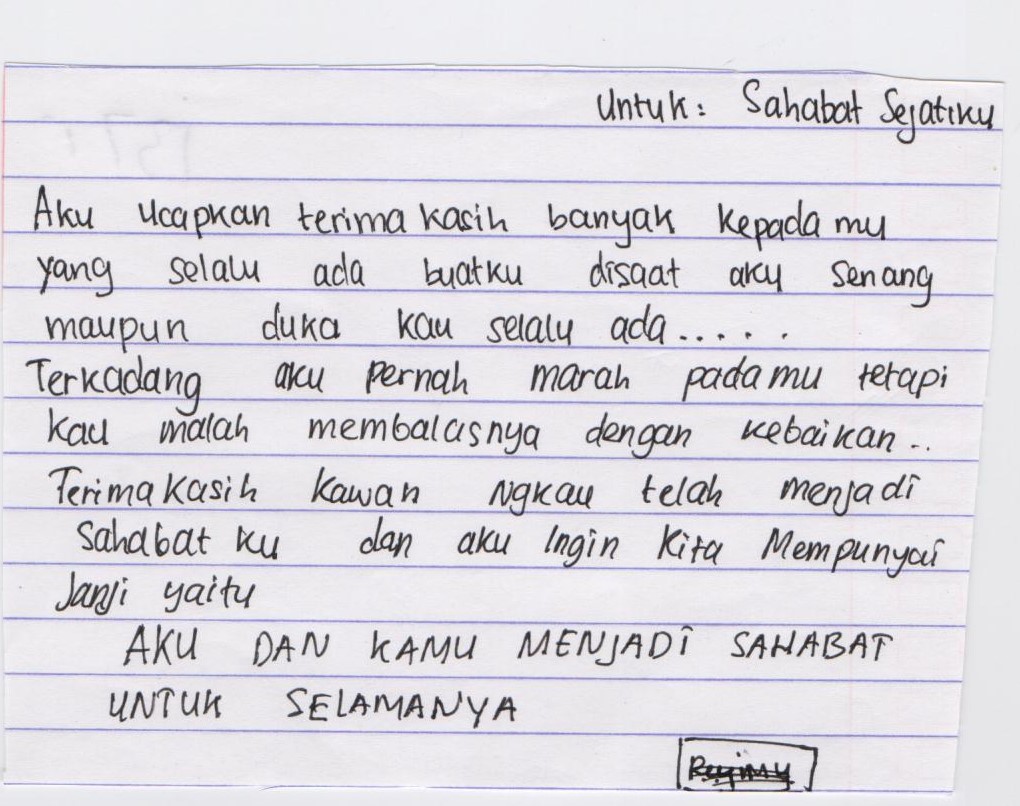 Untuk: Sahabat Sejatiku
Aku ucapkan terima kasih banyak kepada mu
yang selalu ada buatku disaat aku senang
maupun duka kau selalu ada.....
Terkadang aku pernah marah padamu tetapi
kau malah membalasnya dengan kebaikan..
Terimakasih kawan ngkau telah menjadi
Sahabat ku dan aku Ingin Kita Mempunyai
Janji yaitu
AKU DAN KAMU MENJADi SAHABAT
UNTUK SELAMANYA